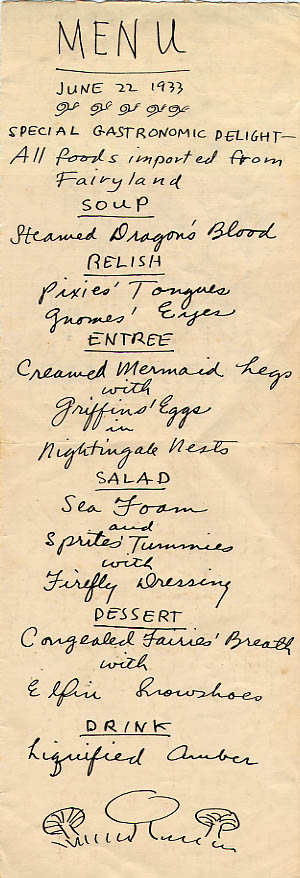 MENU
JUNE 22 1933
SPECIAL GASTRONOMIC DELIGHT—
All foods imported from
Fairyland
SOUP
Steamed Dragon's Blood
RELISH
Pixies' Tongues
Gnomes' Eyes
ENTREE
Creamed Mermaid Legs
with
Griffins' Eggs
in
Nightingale Nests
SALAD
Sea Foam
and
Sprites' Tummies
with
Firefly Dressing
DESSERT
Congealed Fairies' Breath
with
Elfin Snowshoes
DRINK
Liquified Amber